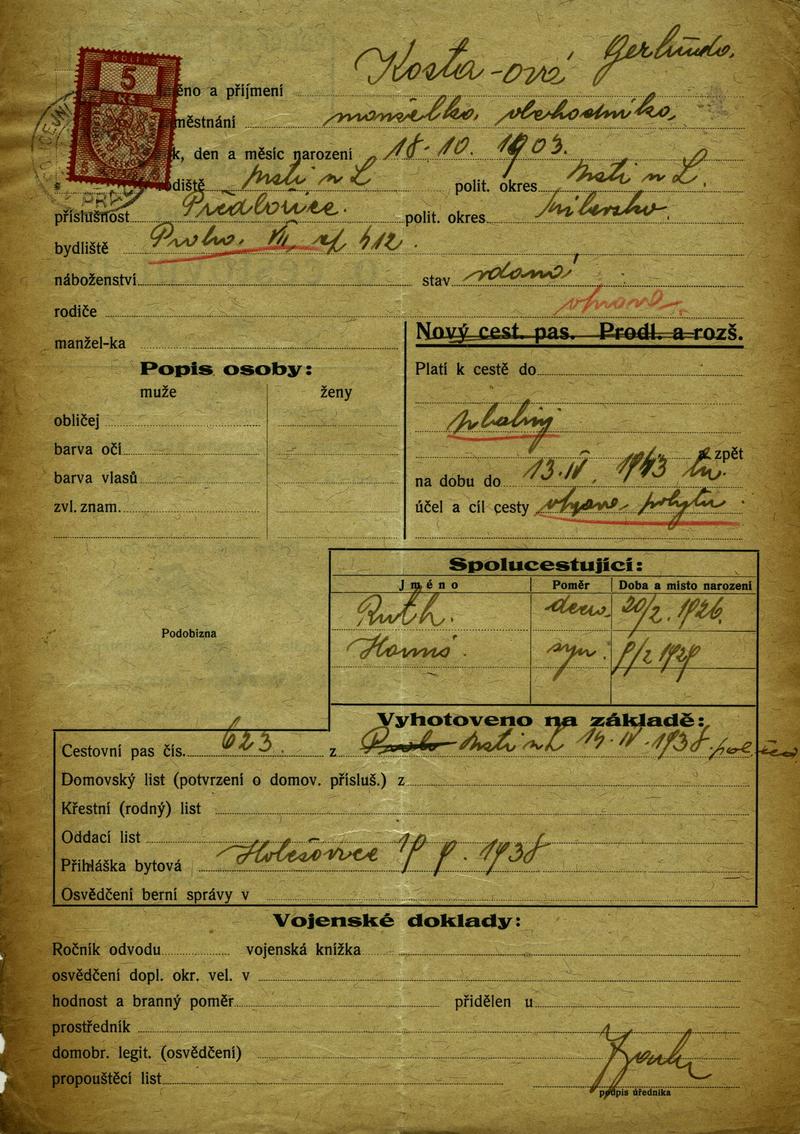 KOLEK
5
Kč
Kosta-ová Gertruda,
éno a příjmení
městnání manželka,
k, den a měsíc narození 18. 10. 1903.
diště Ústí n L polit. okres Ústí n L.
příslušnost polit. okres
bydliště Praha, VII, 612.
náboženství stav vdaná
rodiče
manžel-ka
Nový cest. pas. Prodl. a rozš.
Popis osoby:
muže ženy
Platí k cestě do
obličej
barva očí
zpět
barva vlasů
na dobu do 13. IV. 1943
zvl. znam.
účel a cíl cesty pobytu
Spolucestující:
Jméno Poměr Doba a místo narození
Ruth. dcera 20/2. 1926.
Podobizna
Hanuš. syn.
Vyhotoveno na základě:
Cestovní pas čís. 623. z Ústí n L 14. IV. 1938
Domovský list (potvrzení o domov. přísluš.) z
Křestní (rodný) list
Oddací list
Přihláška bytová Holešovice 1938
Osvědčení berní správy v
Vojenské doklady:
Ročník odvodu vojenská knížka
osvědčení dopl. okr. vel. v
hodnost a branný poměr přidělen u
prostředník
domobr. legit. (osvědčení)
propouštěcí list
podpis úředníka